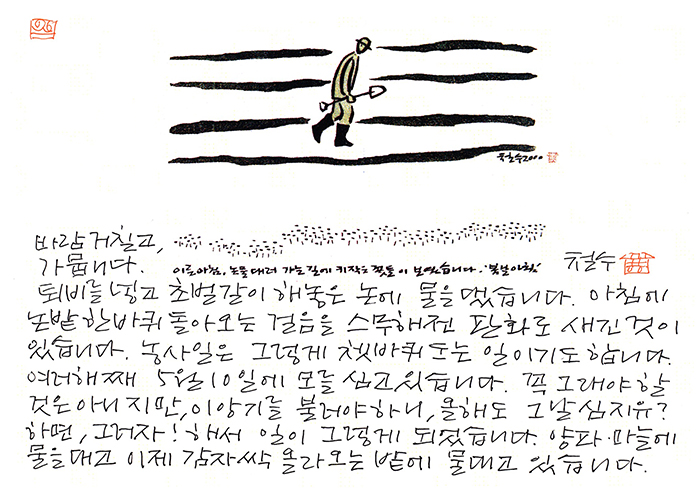 철수2000
바람거칠고,
가뭅니다.
이른아침, 논물대러 가는길에 키작은 꽃들이 보였습니다.
철수
퇴비를 넣고 초벌갈이 해놓은 논에 물을댔습니다. 아침에
논밭 한바퀴 돌아오는 걸음을 스무해전 판화로 새긴것이
있습니다. 농사일은 그렇게 쳇바퀴도는 일이기도합니다.
여러해째 5월10일에 모를 심고있습니다. 꼭 그래야할
것은아니지만, 이앙기를 불러야하니, 올해도 그날심지유?
하면, 그러자! 해서 일이 그렇게 되었습니다. 양파·마늘에
물을대고 이제 감자싹 올라오는 밭에 물대고 있습니다.